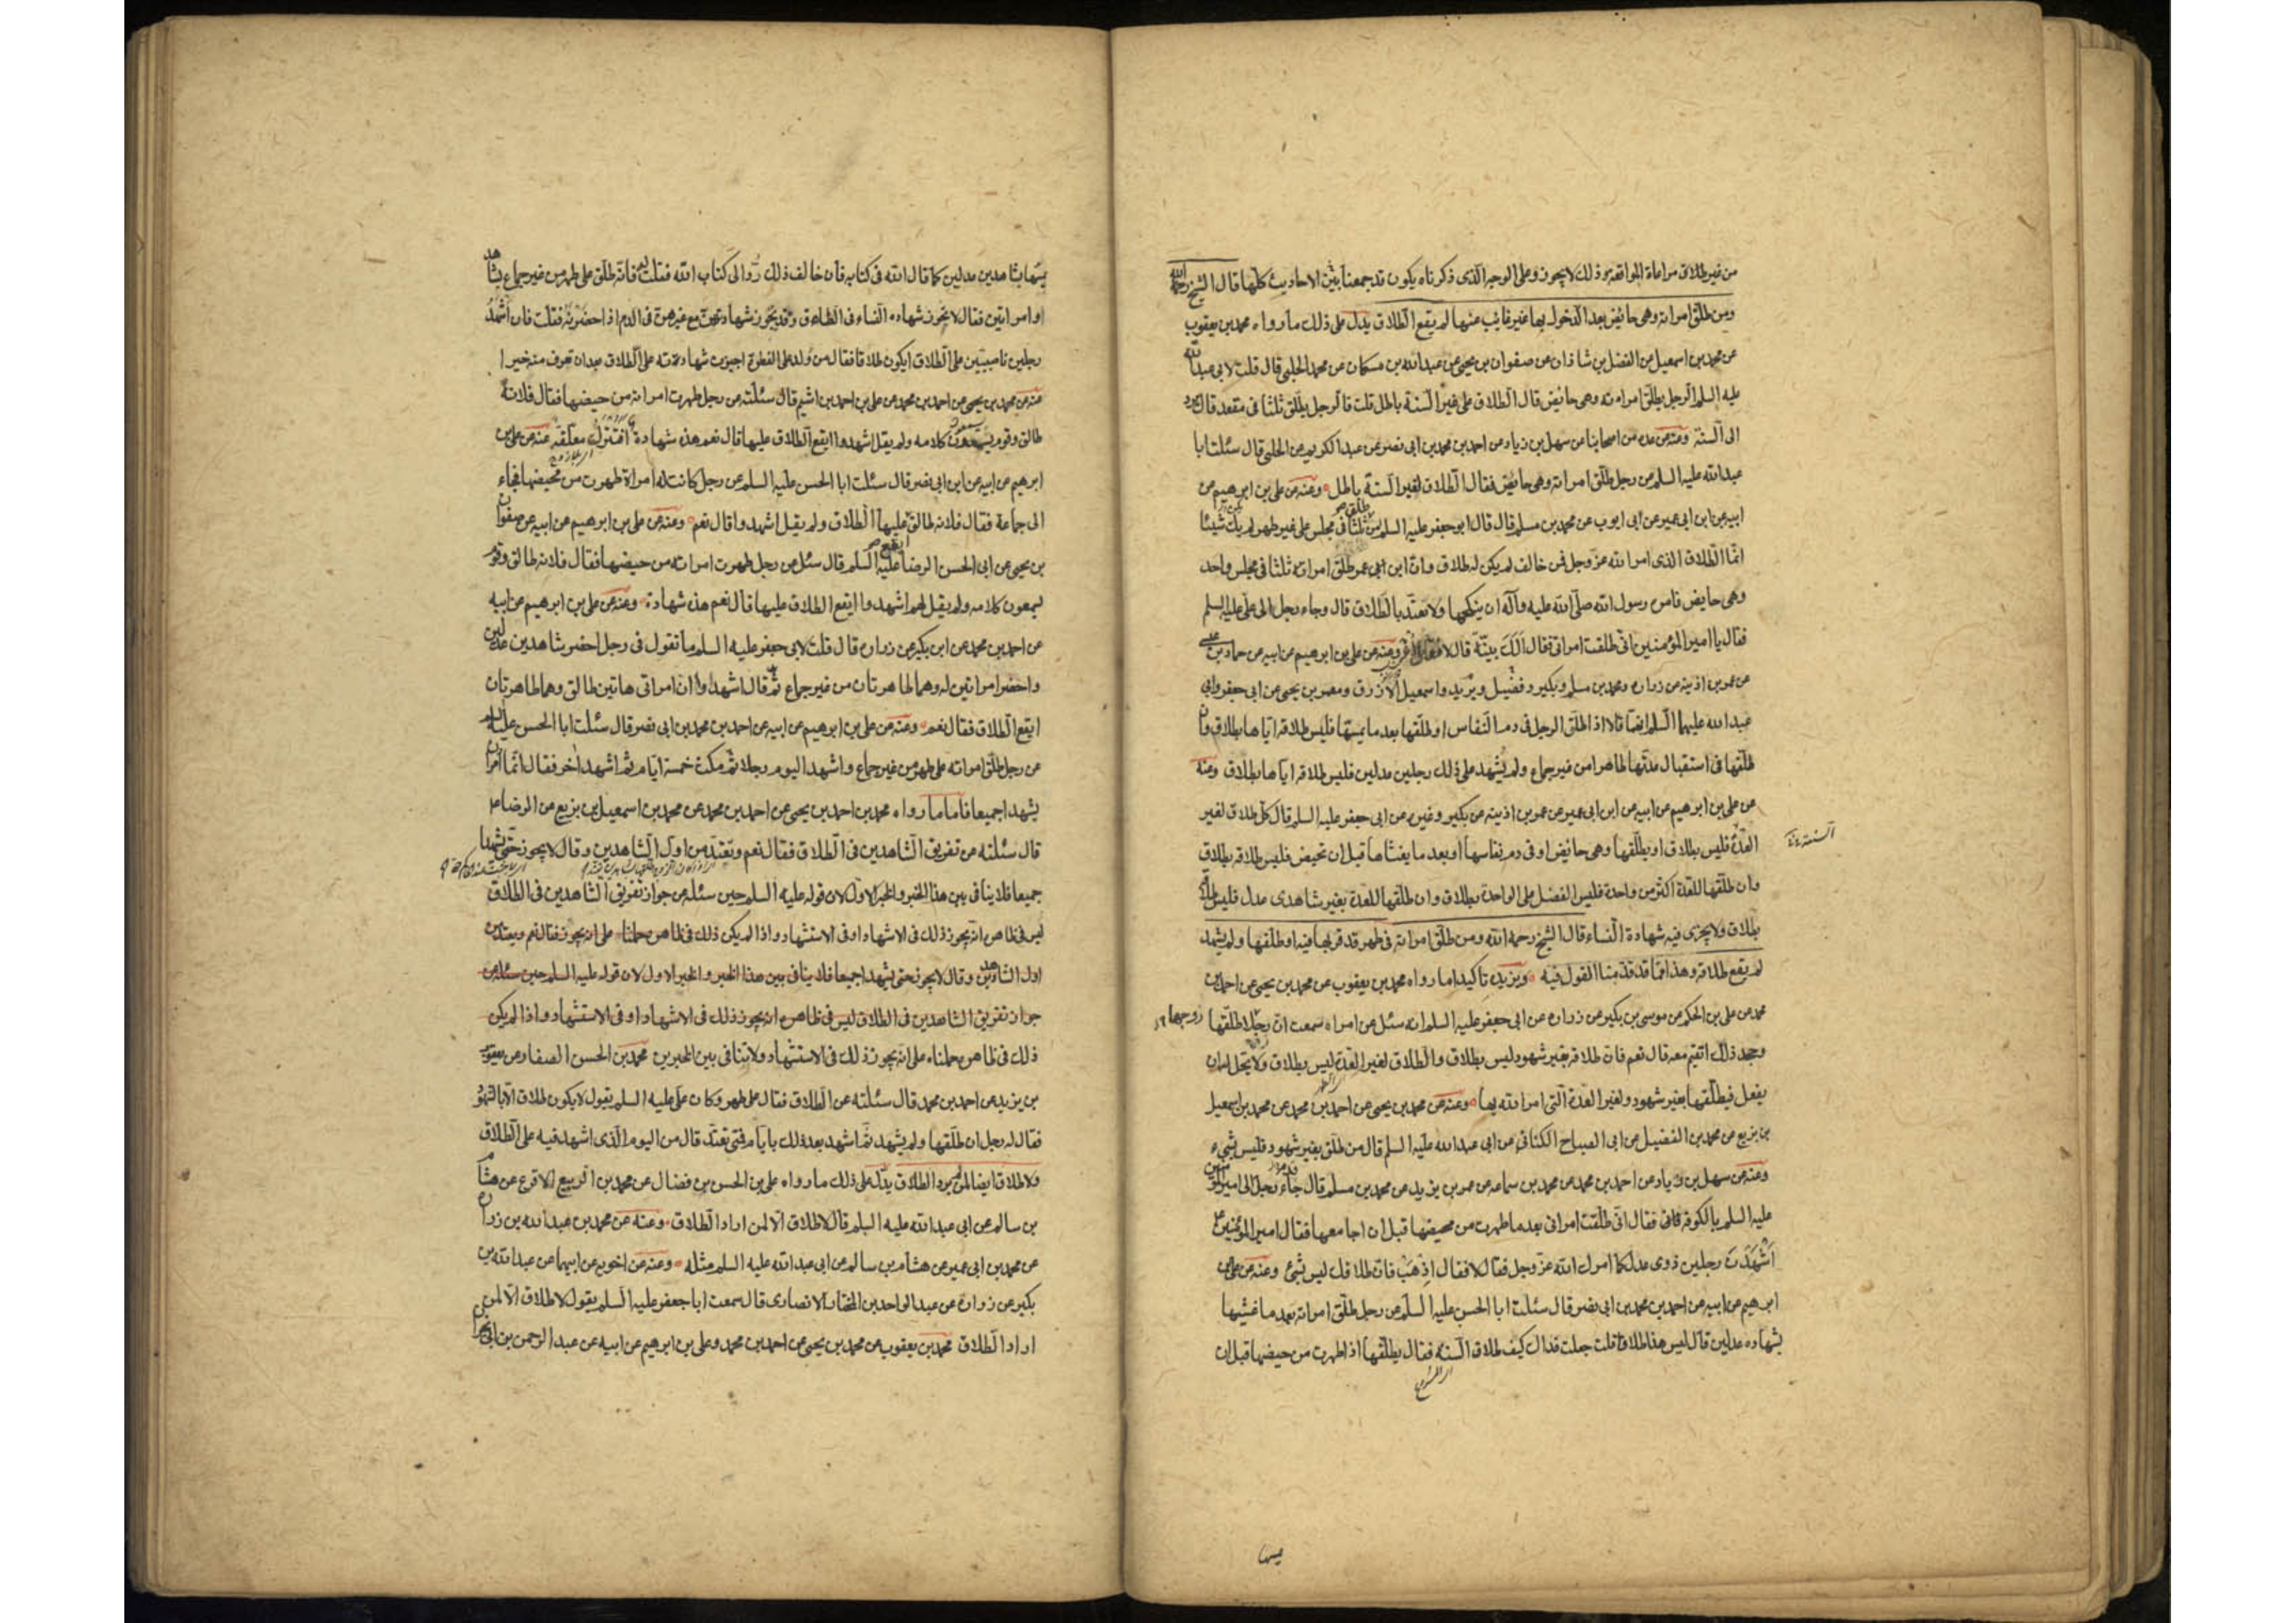 من غير طلاق مراعاة المواقعة وذلك لا يجوز وعلى الوجه الذي ذكرناه يكون قد جمعنا بين الاحاديث كلها قال الشيخ رحمه الله
ومن طلق امراته وهي حائض بعد الدخول بها غير غايب عنها لم يقع الطلاق يدل على ذلك ما رواه محمد بن يعقوب
عن محمد بن اسمعيل عن الفضل بن شاذان عن صفوان بن يحيى عن عبدالله بن مسكان عن محمد الحلبي قال قلت لابي عبدالله
عليه السلم الرجل يطلق امراته وهي حائض قال الطلاق على غير السنة باطل قلت فالرجل يطلق ثلثا في مقعد قال يرد
الى السنة وعنه عن عدة من اصحابنا عن سهل بن زياد عن احمد بن محمد بن ابى نصر عن عبد الكريم عن الحلبي قال سئلت ابا
عبدالله عليه السلم عن رجل طلق امراته وهي حائض فقال الطلاق لغير السنة باطل وعنه عن علي بن ابرهيم عن
ابيه عن ابن ابى عمير عن ابى ايوب عن محمد بن مسلم قال قال ابو جعفر عليه السلم من طلق ثلثا في مجلس على غير طهر لم يك شيئا
انما الطلاق الذي امر الله عز وجل فمن خالف لم يكن له طلاق وان ابن عمر طلق امراته ثلثا في مجلس واحد
وهي حايض فامره رسول الله صلى الله عليه وآله ان ينكحها ولا تعتد بالطلاق قال وجاء رجل الى علي عليه السلم
فقال يا امير المؤمنين اني طلقت امراتي فقال الك بينة قال لا فقال اغرب وعنه عن علي بن ابرهيم عن ابيه عن حماد بن عيسى
عن عمر بن اذينة عن زرارة ومحمد بن مسلم وبكير وفضيل وبريد واسمعيل الازرق ومعمر بن يحيى عن ابى جعفر وابى
عبدالله عليهما السلم انهما قالا اذا طلق الرجل في دم النفاس او طلقها بعد ما يمسها فليس طلاقه اياها بطلاق وان
طلقها في استقبال عدتها طاهرا من غير جماع ولم يشهد على ذلك رجلين عدلين فليس طلاقه اياها بطلاق وعنه
عن علي بن ابرهيم عن ابيه عن ابن ابى عمير عن عمر بن اذينة عن بكير وغيره عن ابى جعفر عليه السلم قال كل طلاق لغير
العدة فليس بطلاق او يطلقها وهي حائض او في دم نفاسها او بعد ما يغشاها قبل ان تحيض فليس طلاقه بطلاق
السنة
وان طلقها للعدة اكثر من واحدة فليس الفضل على الواحدة بطلاق وان طلقها للعدة بغير شاهدي عدل فليس طلاقه
بطلاق ولا يجزى فيه شهادة النساء قال الشيخ رحمه الله ومن طلق امراته في طهر قد قربها فيه او طلقها ولم يشهد
لم يقع طلاقه وهذا مما قد قدمنا القول فيه ويزيده تاكيدا ما رواه محمد بن يعقوب عن محمد بن يحيى عن احمد بن
محمد عن علي بن الحكم عن موسى بن بكير عن زرارة عن ابى جعفر عليه السلم انه سئل عن امراة سمعت ان رجلا طلقها
زوجها
وجحد ذلك اتقيم معه قال نعم فان طلاقه بغير شهود ليس بطلاق والطلاق لغير العدة ليس بطلاق ولا يحل له ان
يفعل فيطلقها بغير شهود ولغير العدة التي امر الله بها وعنه عن محمد بن يحيى عن احمد بن محمد عن محمد بن اسمعيل
بن بزيع عن محمد بن الفضيل عن ابى الصباح الكناني عن ابى عبدالله عليه السلم قال من طلق بغير شهود فليس بشيء
وعنه عن سهل بن زياد عن احمد بن محمد عن محمد بن سماعة عن عمر بن يزيد عن محمد بن مسلم قال جاء رجل الى امير المؤمنين
عليه السلم بالكوفة فقال اني طلقت امراتي بعد ما طهرت من محيضها قبل ان اجامعها فقال امير المؤمنين ع
اشهدت رجلين ذوي عدل كما امرك الله عز وجل فقال لا فقال اذهب فان طلاقك ليس بشئ وعنه عن علي بن
ابرهيم عن ابيه عن احمد بن محمد بن ابى نصر قال سئلت ابا الحسن عليه السلم عن رجل طلق امراته بعد ما غشيها
بشهادة عدلين قال ليس هذا طلاقا قلت جعلت فداك كيف طلاق السنة فقال يطلقها اذا طهرت من حيضها قبل ان
يمسها
يمسها بشاهدين عدلين كما قال الله في كتابه فان خالف ذلك رد الى كتاب الله فقلت له فانه طلق على طهر من غير جماع بشاهد
او امراتين فقال لا تجوز شهادة النساء في الطلاق وقد تجوز شهادتهن مع غيرهن في الدم اذا حضرته فقلت فان اشهد
رجلين ناصبيين على الطلاق ايكون طلاقا فقال من ولد على الفطرة اجيزت شهادته على الطلاق بعد ان تعرف منه خيرا
عنه عن محمد بن يحيى عن احمد بن محمد عن علي بن احمد بن اشيم قال سئلته عن رجل طهرت امراته من حيضها فقال فلانة
طالق وقوم يسمعون كلامه ولم يقل اشهدوا ايقع الطلاق عليها قال نعم هذه شهادة افتترك معلقة عنه عن علي بن
ابرهيم عن ابيه عن ابن ابى نصر قال سئلت ابا الحسن عليه السلم عن رجل كانت له امراة طهرت من محيضها فجاء
الى جماعة فقال فلانه طالق عليها الطلاق ولم يقل اشهدوا قال نعم وعنه عن علي بن ابرهيم عن ابيه عن صفوان
بن يحيى عن ابى الحسن الرضا عليه السلم قال سئل عن رجل طهرت امراته من حيضها فقال فلانه طالق وقوم
يسمعون كلامه ولم يقل لهم اشهدوا ايقع الطلاق عليها قال نعم هذه شهادة وعنه عن علي بن ابرهيم عن ابيه
عن احمد بن محمد عن ابن بكير عن زرارة قال قلت لابى جعفر عليه السلم ما تقول في رجل احضر شاهدين عدلين
واحضر امراتين له وهما طاهرتان من غير جماع ثم قال اشهدوا ان امراتي هاتين طالق وهما طاهرتان
ايقع الطلاق فقال نعم وعنه عن علي بن ابرهيم عن ابيه عن احمد بن محمد بن ابى نصر قال سئلت ابا الحسن عليه السلم
عن رجل طلق امراته على طهر من غير جماع واشهد اليوم رجلا ثم مكث خمسة ايام ثم اشهد اخر فقال انما امر ان
يشهدا جميعا فاما ما رواه محمد بن احمد بن يحيى عن احمد بن محمد عن محمد بن اسمعيل بن بزيع عن الرضا ع
قال سئلته عن تفريق الشاهدين في الطلاق فقال نعم وتعتد من اول الشاهدين وقال لا يجوز حتى يشهدا
جميعا فلا ينافي بين هذا الخبر والخبر الاول لان قوله عليه السلم حين سئله عن جواز تفريق الشاهدين في الطلاق
ليس في ظاهره انه يجوز ذلك في الاشهاد او في الاستشهاد واذا لم يكن ذلك في ظاهره حملناه على انه يجوز فقال نعم وتعتد من
اول الشاهدين وقال لا يجوز حتى يشهدا جميعا فلا ينافي بين هذا الخبر والخبر الاول لان قوله عليه السلم حين سئله عن
جواز تفريق الشاهدين في الطلاق ليس في ظاهره انه يجوز ذلك في الاشهاد او في الاستشهاد واذا لم يكن
ذلك في ظاهره حملناه على انه يجوز ذلك في الاستشهاد ولا تنافي بين الخبرين محمد بن الحسن الصفار عن يعقوب
بن يزيد عن احمد بن محمد قال سئلته عن الطلاق فقال على طهر وكان علي عليه السلم يقول لا يكون طلاق الا بالشهود
فقال له رجل ان طلقها ولم يشهد ثم اشهد بعد ذلك بايام فمتى تعتد قال من اليوم الذي اشهد فيه على الطلاق
ولا طلاق ايضا لمن لم يرد الطلاق يدل على ذلك ما رواه علي بن الحسن بن فضال عن محمد بن الربيع الاقرع عن هشام
بن سالم عن ابى عبدالله عليه السلم قال لا طلاق الا لمن اراد الطلاق وعنه عن محمد بن عبدالله بن زرارة
عن محمد بن ابى عمير عن هشام بن سالم عن ابى عبدالله عليه السلم مثله وعنه عن اخويه عن ابيهما عن عبدالله بن
بكير عن زرارة عن عبد الواحد بن المختار الانصارى قال سمعت ابا جعفر عليه السلم يقول لا طلاق الا لمن
اراد الطلاق محمد بن يعقوب عن محمد بن يحيى عن احمد بن محمد وعلي بن ابرهيم عن ابيه عن عبد الرحمن بن ابى نجران